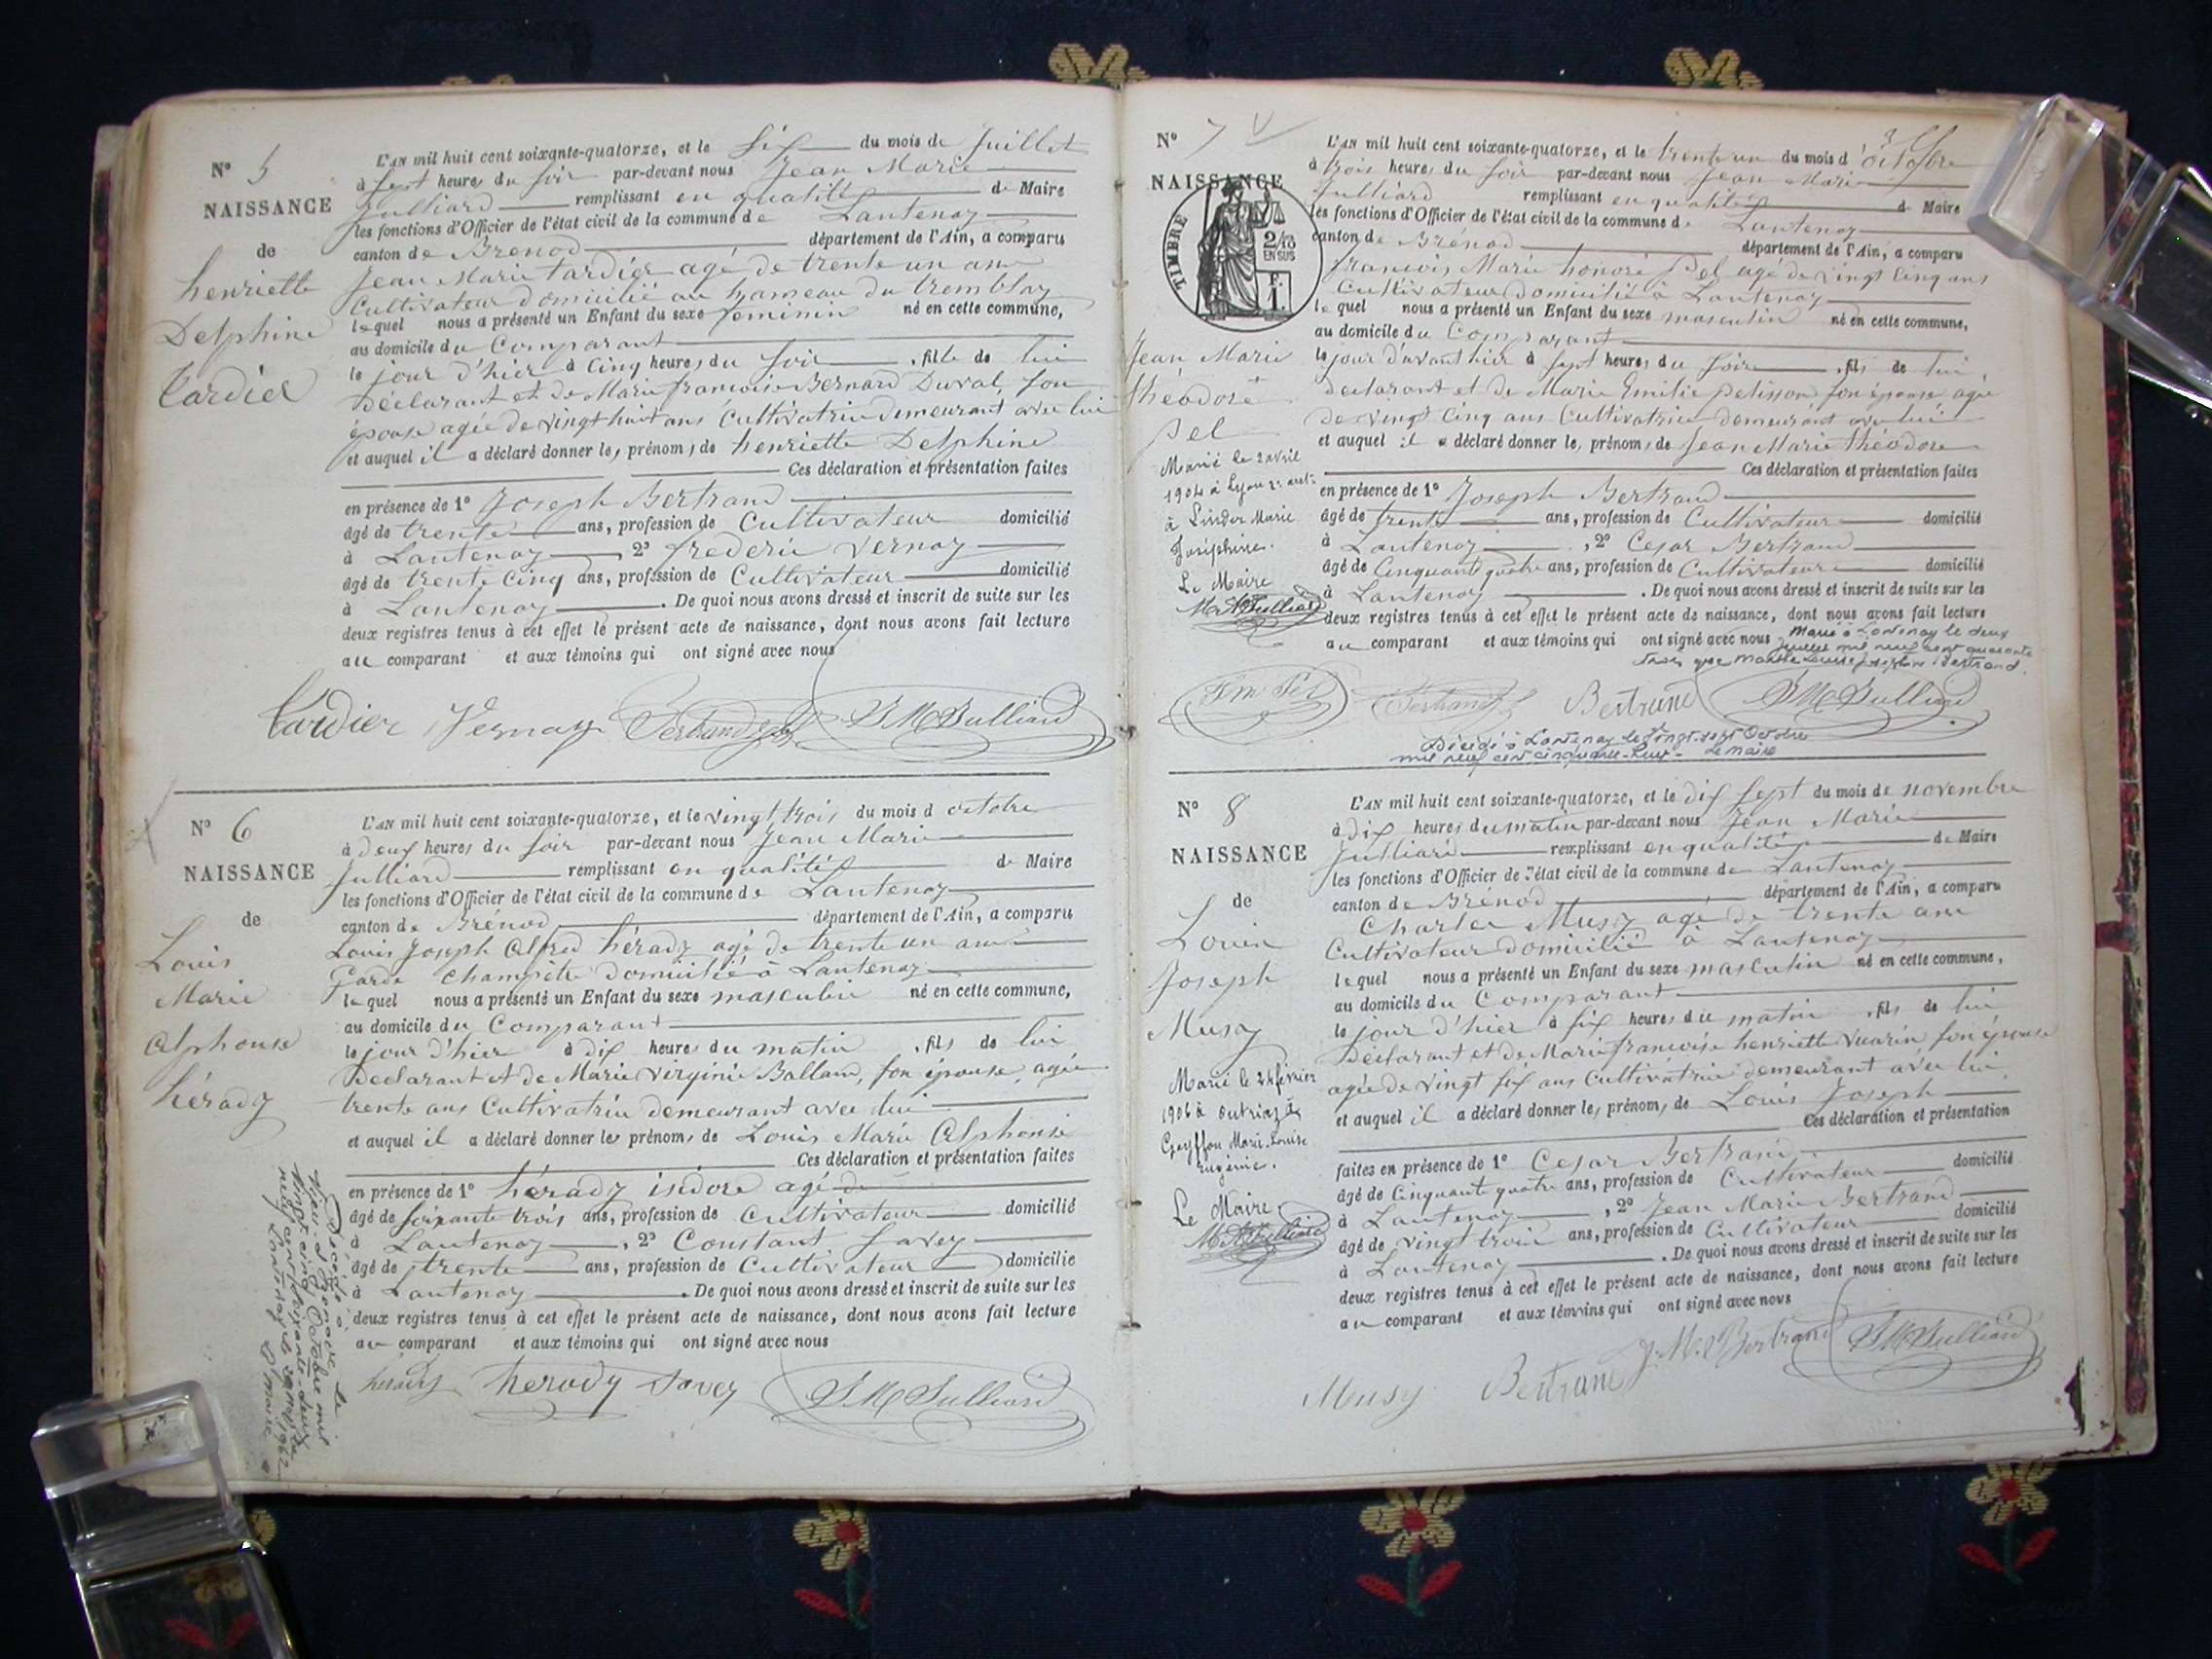 N° 5
NAISSANCE
de
henriette
Delphine
Tardier
L'AN mil huit cent soixante-quatorze, et le Six du mois de Juillet
à Sept heures du Soir par-devant nous Jean Marie
Julliard remplissant en qualité de Maire
les fonctions d'Officier de l'état civil de la commune de Lantenay
canton de Brénod département de l'Ain, a comparu
Jean Marie Tardier agé de trente un ans
Cultivateur domicilié au hameau du tremblay
lequel nous a présenté un Enfant du sexe feminin né en cette commune,
au domicile du Comparant
le jour d'hier à Cinq heures du Soir , fille de lui
Déclarant et de Marie françoise Bernard Duval, son
épouse agée de vingt huit ans Cultivatrice demeurant avec lui
et auquel il a déclaré donner les prénoms de henriette Delphine
Ces déclaration et présentation faites
en présence de 1° Joseph Bertrand
âgé de trente ans, profession de Cultivateur domicilié
à Lantenay , 2° frederic Vernay
âgé de trente Cinq ans, profession de Cultivateur domicilié
à Lantenay . De quoi nous avons dressé et inscrit de suite sur les
deux registres tenus à cet effet le présent acte de naissance, dont nous avons fait lecture
au comparant et aux témoins qui ont signé avec nous
Tardier Vernay Bertrand J M Julliard
N° 6
NAISSANCE
de
Louis
Marie
Alphonse
hérady
L'AN mil huit cent soixante-quatorze, et le vingt trois du mois d octobre
à deux heures du Soir par-devant nous Jean Marie
Julliard remplissant en qualité de Maire
les fonctions d'Officier de l'état civil de la commune de Lantenay
canton de Brénod département de l'Ain, a comparu
Louis Joseph Alfred hérady agé de trente un ans
Garde Champêtre domicilié à Lantenay
lequel nous a présenté un Enfant du sexe masculin né en cette commune,
au domicile du Comparant
le jour d'hier à dix heures du matin , fils de lui
Déclarant et de Marie Virginie Balland, son épouse agée
trente ans Cultivatrice demeurant avec lui
et auquel il a déclaré donner les prénoms de Louis Marie Alphonse
Ces déclaration et présentation faites
en présence de 1° hérady isidore agé de
âgé de soixante trois ans, profession de Cultivateur domicilié
à Lantenay , 2° Constant Savey
âgé de trente ans, profession de Cultivateur domicilié
à Lantenay . De quoi nous avons dressé et inscrit de suite sur les
deux registres tenus à cet effet le présent acte de naissance, dont nous avons fait lecture
au comparant et aux témoins qui ont signé avec nous
hérady herady Savey J M Julliard
Décédé à
le
vingt cinq Octobre mil
neuf cent soixante-deux
Lantenay le 1962
le maire
N° 7
NAISSANCE
TIMBRE
2/10
EN SUS
F.
1.
Jean Marie
théodore
Pel
Marié le 2 avril
1904 à Lyon 2e arrt
à Linder Marie
Joséphine.
Le Maire
M. Julliard
L'AN mil huit cent soixante-quatorze, et le trente un du mois d'octobre
à trois heures du Soir par-devant nous Jean Marie
Julliard remplissant en qualité d Maire
les fonctions d'Officier de l'état civil de la commune d Lantenay
canton de Brénod département de l'Ain, a comparu
françois Marie honoré Pel agé de vingt cinq ans
Cultivateur domicilié à Lantenay
lequel nous a présenté un Enfant du sexe masculin né en cette commune,
au domicile du Comparant
le jour d'avant hier à Sept heures du Soir , fils de lui
declarant et de Marie Emilie Pelisson son épouse agée
de vingt Cinq ans Cultivatrice demeurant avec lui
et auquel il a déclaré donner les prénoms de Jean Marie théodore
Ces déclaration et présentation faites
en présence de 1° Joseph Bertrand
âgé de trente ans, profession de Cultivateur domicilié
à Lantenay , 2° Cesar Bertrand
âgé de Cinquante quatre ans, profession de Cultivateur domicilié
à Lantenay . De quoi nous avons dressé et inscrit de suite sur les
deux registres tenus à cet effet le présent acte de naissance, dont nous avons fait lecture
au comparant et aux témoins qui ont signé avec nous Marié à Lantenay le deux
juillet mil neuf cent quarante
trois avec Marthe Louise Bertrand
F m Pel Bertrand Bertrand J M Julliard
Décédé à Lantenay le vingt-sept Octobre
mil neuf cent cinquante-deux - Le Maire
N° 8
NAISSANCE
de
Louis
Joseph
Musy
Marié le 24 février
1906 à Outriaz à
Marie-Louise
Eugénie.
Le Maire
M. Julliard
L'AN mil huit cent soixante-quatorze, et le dix sept du mois de novembre
à dix heures du matin par-devant nous Jean Marie
Julliard remplissant en qualité de Maire
les fonctions d'Officier de l'état civil de la commune de Lantenay
canton de Brénod département de l'Ain, a comparu
Charles Musy agé de trente ans
Cultivateur domicilié à Lantenay
lequel nous a présenté un Enfant du sexe masculin né en cette commune,
au domicile du Comparant
le jour d'hier à six heures du matin , fils de lui
Déclarant et de Marie françoise henriette Vuarin, son épouse
agée de vingt six ans Cultivatrice demeurant avec lui
et auquel il a déclaré donner les prénoms de Louis Joseph
Ces déclaration et présentation
faites en présence de 1° Cesar Bertrand
âgé de Cinquante quatre ans, profession de Cultivateur domicilié
à Lantenay , 2° Jean Marie Bertrand
âgé de vingt trois ans, profession de Cultivateur domicilié
à Lantenay . De quoi nous avons dressé et inscrit de suite sur les
deux registres tenus à cet effet le présent acte de naissance, dont nous avons fait lecture
au comparant et aux témoins qui ont signé avec nous
Musy Bertrand J. M. Bertrand J M Julliard